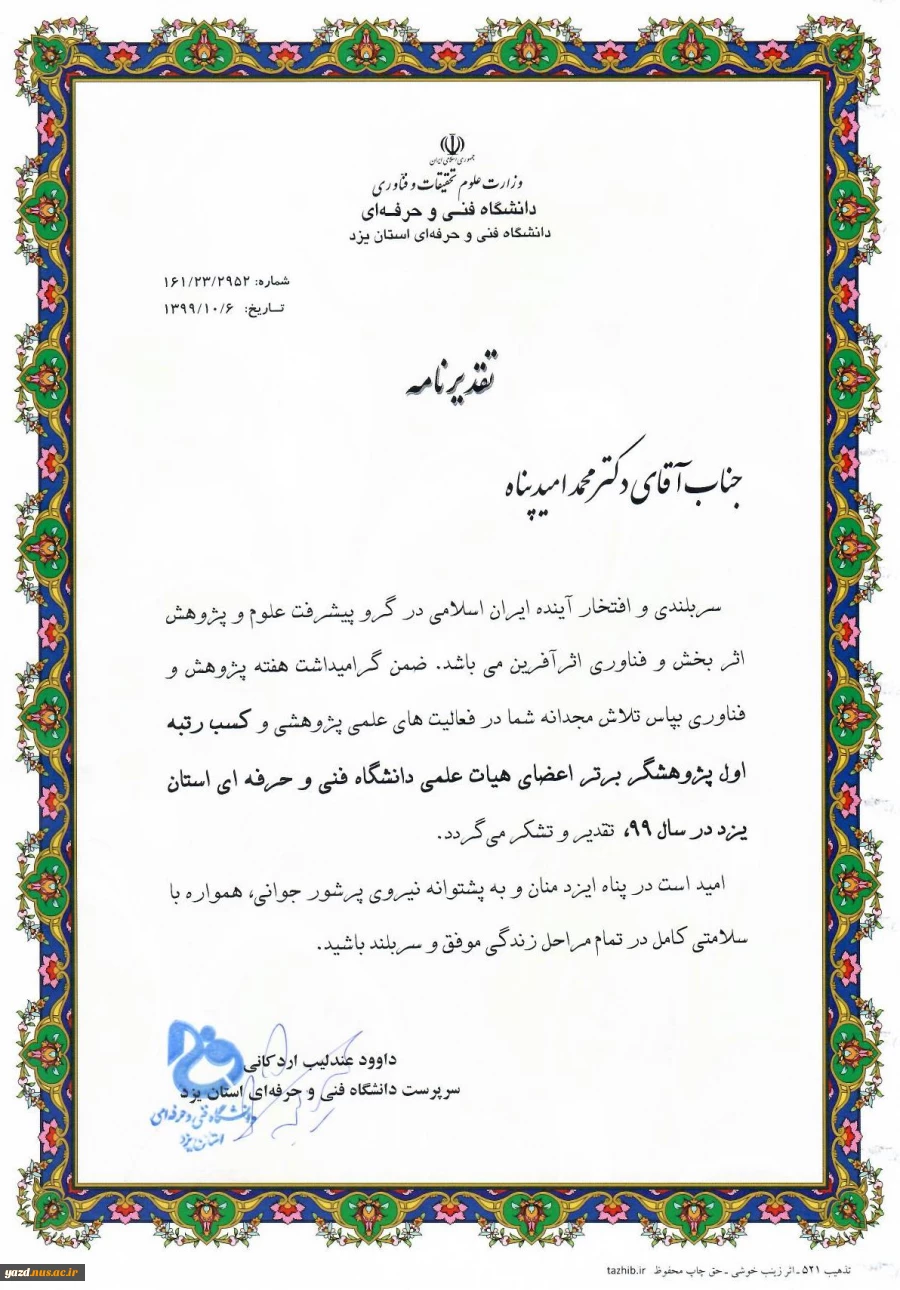 جمهوری اسلامی ایران
وزارت علوم تحقیقات و فنّاوری
دانشگاه فنـی و حرفـه‌ای
دانشگاه فنی و حرفه‌ای استان یزد
شماره: ۱۶۱/۲۳/۲۹۵۲
تـاریخ: ۱۳۹۹/۱۰/۶
تقدیرنامه
جناب آقای دکتر محمد امیدپناه
سربلندی و افتخار آینده ایران اسلامی در گرو پیشرفت علوم و پژوهش
اثر بخش و فناوری اثرآفرین می باشد. ضمن گرامیداشت هفته پژوهش و
فناوری بپاس تلاش مجدانه شما در فعالیت های علمی پژوهشی و کسب رتبه
اول پژوهشگر برتر اعضای هیات علمی دانشگاه فنی و حرفه ای استان
یزد در سال ۹۹، تقدیر و تشکر می‌گردد.
امید است در پناه ایزد منان و به پشتوانه نیروی پرشور جوانی، همواره با
سلامتی کامل در تمام مراحل زندگی موفق و سربلند باشید.
داوود عندلیب اردکانی
سرپرست دانشگاه فنی و حرفه‌ای استان یزد
دانشگاه فنی و حرفه‌ای
استان یزد
تذهیب ۵۲۱ ـ اثر زینب خوشی ـ حق چاپ محفوظ tazhib.ir
yazd.nus.ac.ir